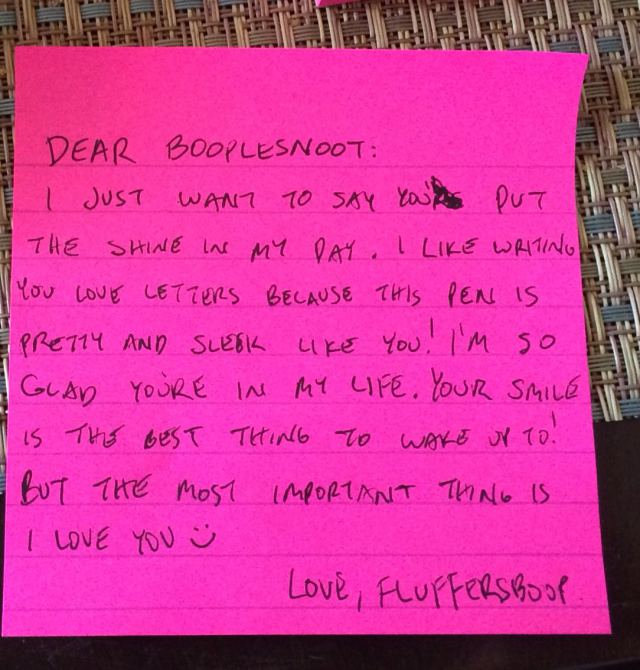 DEAR BOOPLESNOOT:
I JUST WANT TO SAY YOU PUT
THE SHINE IN MY DAY. I LIKE WRITING
YOU LOVE LETTERS BECAUSE THIS PEN IS
PRETTY AND SLEEK LIKE YOU! I'M SO
GLAD YOU'RE IN MY LIFE. YOUR SMILE
IS THE BEST THING TO WAKE UP TO!
BUT THE MOST IMPORTANT THING IS
I LOVE YOU :)
LOVE, FLUFFERSBOOP.